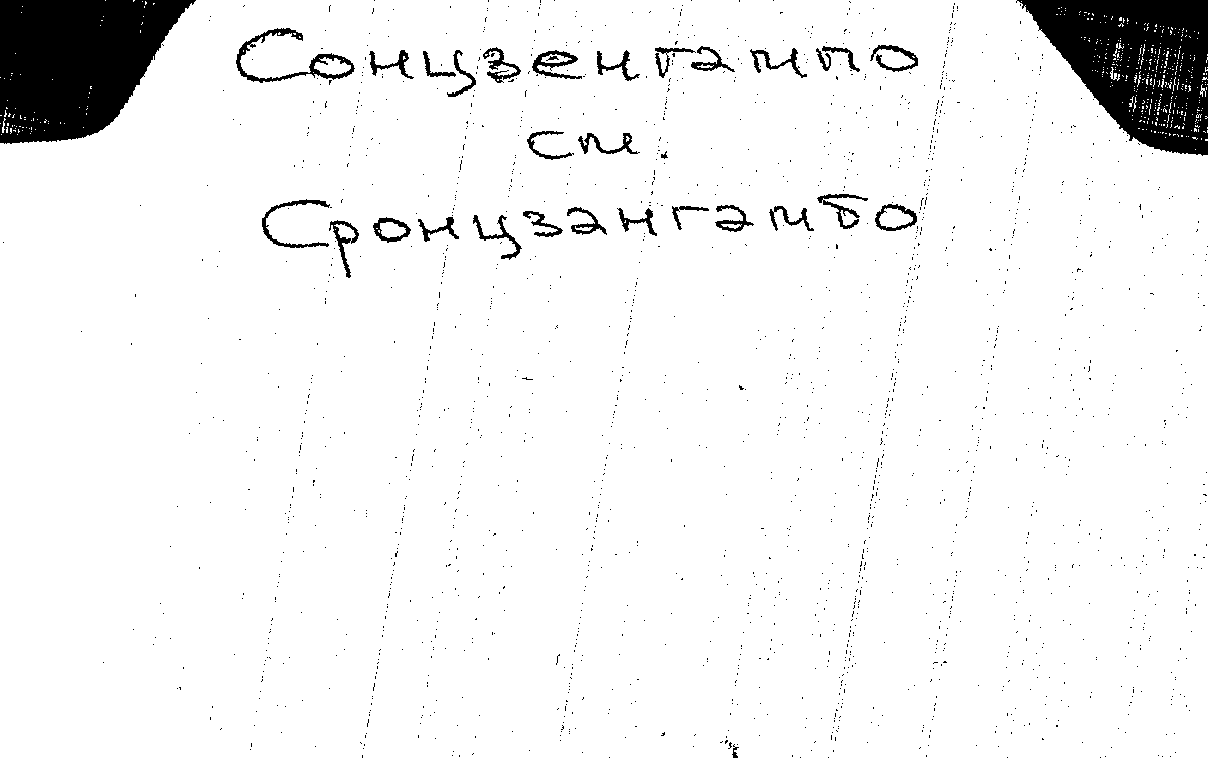 Сонцзенгампо
см.
Сронцзангамбо